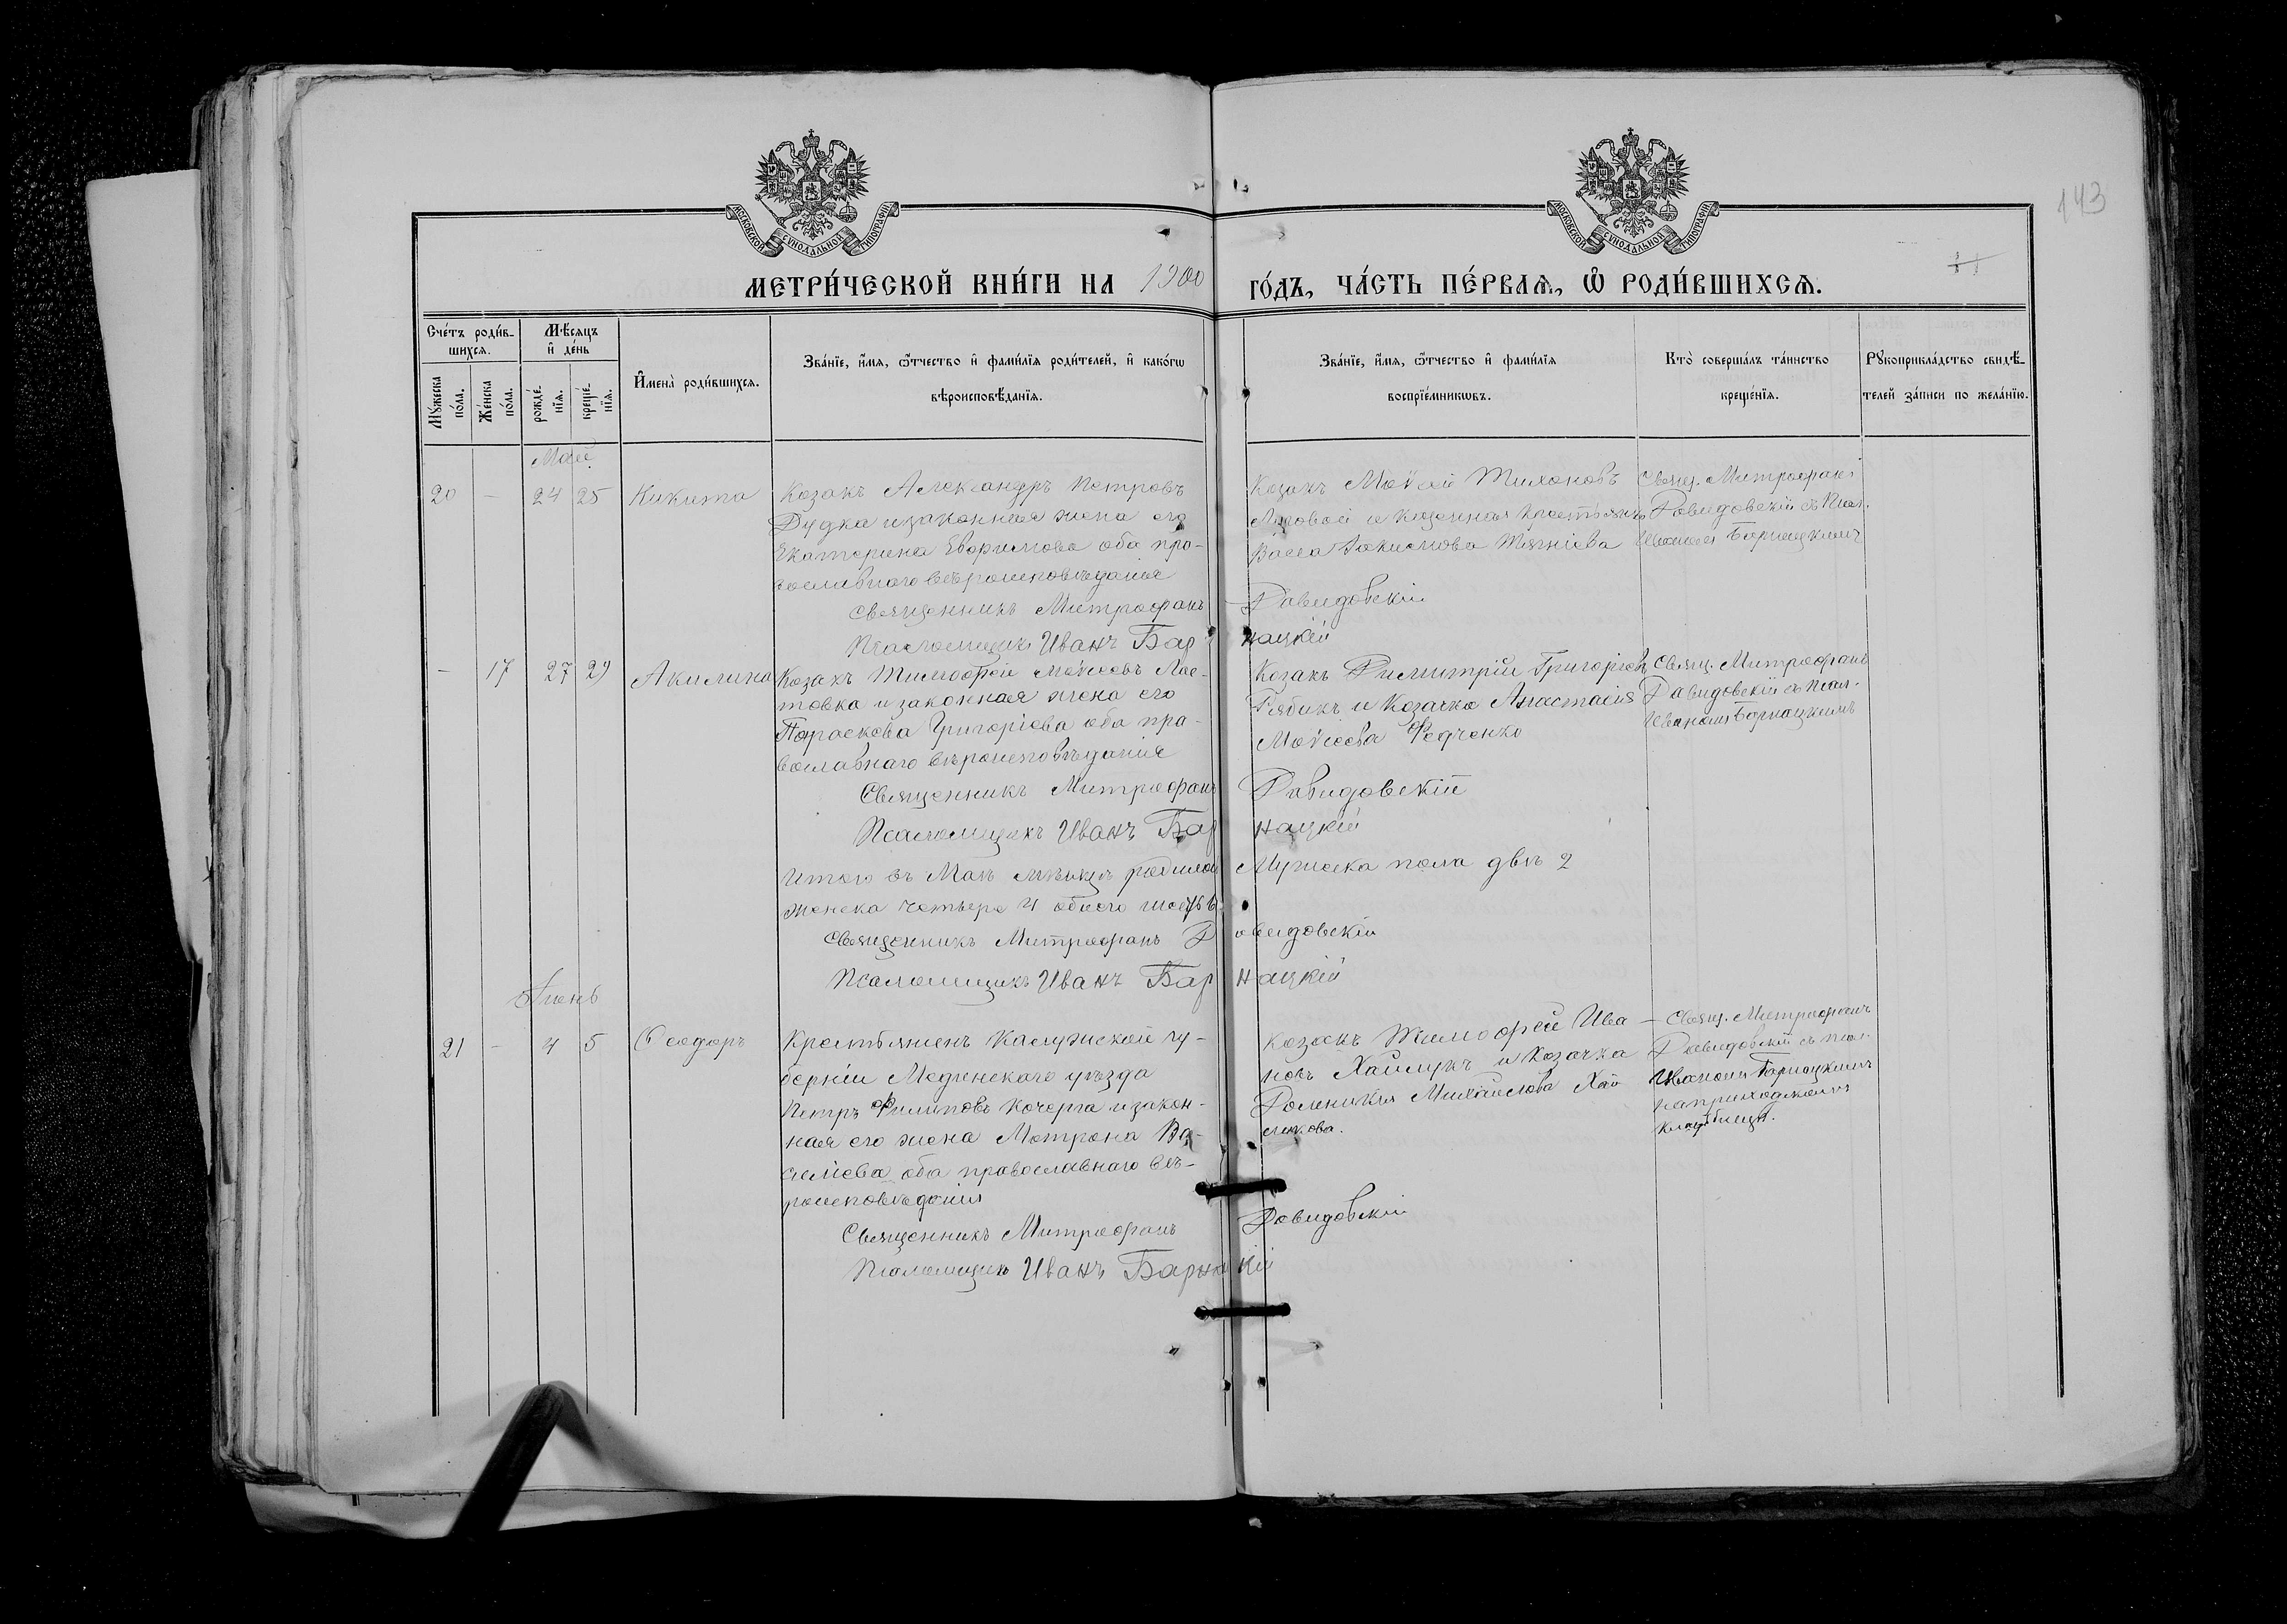 143
МОСКОВСКОЙ СѴНОДАЛЬНОЙ ТИПОГРАФІИ
МОСКОВСКОЙ СѴНОДАЛЬНОЙ ТИПОГРАФІИ
МЕТРИ́ЧЕСКОЙ КНИ́ГИ НА 1900 ГО́ДЪ, ЧА́СТЬ ПЕ́РВАѦ, Ѡ҆ РОДИ́ВШИХСѦ.
Сче́тъ роди́в-
шихсѧ.
Мꙋ́жеска
по́ла.
Же́нска
по́ла.
Мѣ́сѧцъ
и҆ де́нь
рожде́-
нїѧ.
креще́-
нїѧ.
И҆мена̀ роди́вшихсѧ.
Зва́нїе, и҆́мѧ, ѻ҆́тчество и҆ фами́лїѧ роди́телей, и҆ како́гѡ
вѣроисповѣ́данїѧ.
Зва́нїе, и҆́мѧ, ѻ҆́тчество и҆ фами́лїѧ
воспрїе́мникѡвъ.
Кто̀ соверша́лъ та́инство
креще́нїѧ.
Рꙋкоприкла́дство свидѣ́-
телей за́писи по жела́нїю.
Май
20 - 24 25 Никита
Козакъ Александръ Петровъ
Дудка и законная жена его
Екатерина Евфимова оба пра-
вославнаго вѣроисповѣданія
Козакъ Моѵсей Тихоновъ
и казенная крестьянка
Васса
Свящ. Митрофанъ
Давидовскій съ псал.
Иваномъ Барнацкимъ
Священникъ Митрофанъ Давидовскій
Псаломщикъ Иванъ Барнацкій
- 17 27 29 Акилина
Козакъ Тимофей Моѵсеевъ Лас-
товка и законная жена его
Параскева Григоріева оба пра-
вославнаго вѣроисповѣданія
Козакъ Димитрій Григоріевъ
Рябикъ и Козачка Анастасія
Моѵсеева Федченко
Свящ. Митрофанъ
Давидовскій съ псал.
Иваномъ Барнацкимъ
Священникъ Митрофанъ Давидовскій
Псаломщикъ Иванъ Барнацкій
Итого въ Маѣ мѣсяцѣ родилось Мужеска пола двѣ 2
женска четыре 4 обоего шесть 6
Священникъ Митрофанъ Давидовскій
Псаломщикъ Иванъ Барнацкій
Іюнь
21 - 4 5 Ѳеодоръ
Крестьянинъ Калужской гу-
берніи Медынскаго уѣзда
Петръ Филиповъ Кочерга и закон-
ная его жена Матрона Ва-
силіева оба православнаго вѣ-
роисповѣданія
Козакъ Тимофей Ива-
новъ Хайлукъ и Козачка
Домникія Михайлова Хай
лукова.
Свящ. Митрофанъ
Давидовскій съ псал.
Иваномъ Барнацкимъ
на приходскомъ
кладбищѣ.
Священникъ Митрофанъ Давидовскій
Псаломщикъ Иванъ Барнацкій